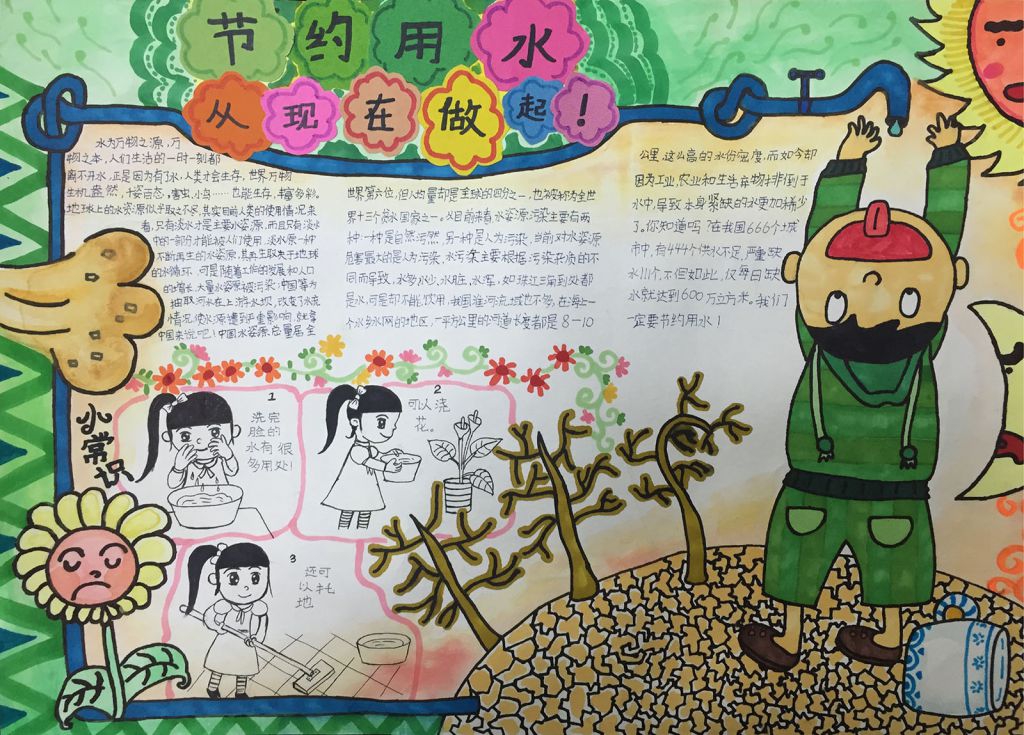 节约用水
从现在做起!
水为万物之源,万
物之本,人们生活的一时一刻都
离不开水,正是因为有了水,人类才会生存,世界万物
生机盎然,千姿百态,害虫,小鸟……也能生存,丰富多彩。
地球上的水资源似乎取之不尽,其实目前人类的使用情况来
看,只有淡水才是主要水资源,而且只有淡水
中的一部分才能被人们使用.淡水原一种
不断再生的水资源,其再生取决于地球
的水循环,可是随着工作的发展和人口
的增长,大量水源被污染;中国等为
抽取河水在上游水坝,改变了水流
情况,使水源遭到严重影响,就拿
中国来说吧!中国水资源总量居全
世界第六位,但人均量却是全球的四分之一,也被称为全世
界十三个贫水国家之一。以目前来看水资源污染主要有两
种:一种是自然污染,另一种是人为污染,当前对水资源
危害最大的是人为污染,水污染主要根据污染杂质的不
同而导致,水多水少,水脏,水浑,如珠江三角到处都
是水,可是却不能饮用,我国淮河流域也不够,在海上一
个水乡水网的地区,一平方公里的河道长度都是8-10
公里,这么高的水份密度,而如今却
因为工业,农业和生活弃物排倒于
水中,导致本身紧缺的水更加稀少
了。你知道吗?在我国666个城
市中,有444个供水不足,严重缺
水111个,不但如此,仅每日缺
水就达到600万立方米。我们
一定要节约用水!
小常识
1
洗完
脸的
水有很
多用处!
2
可以浇
花。
3
还可
以拖
地